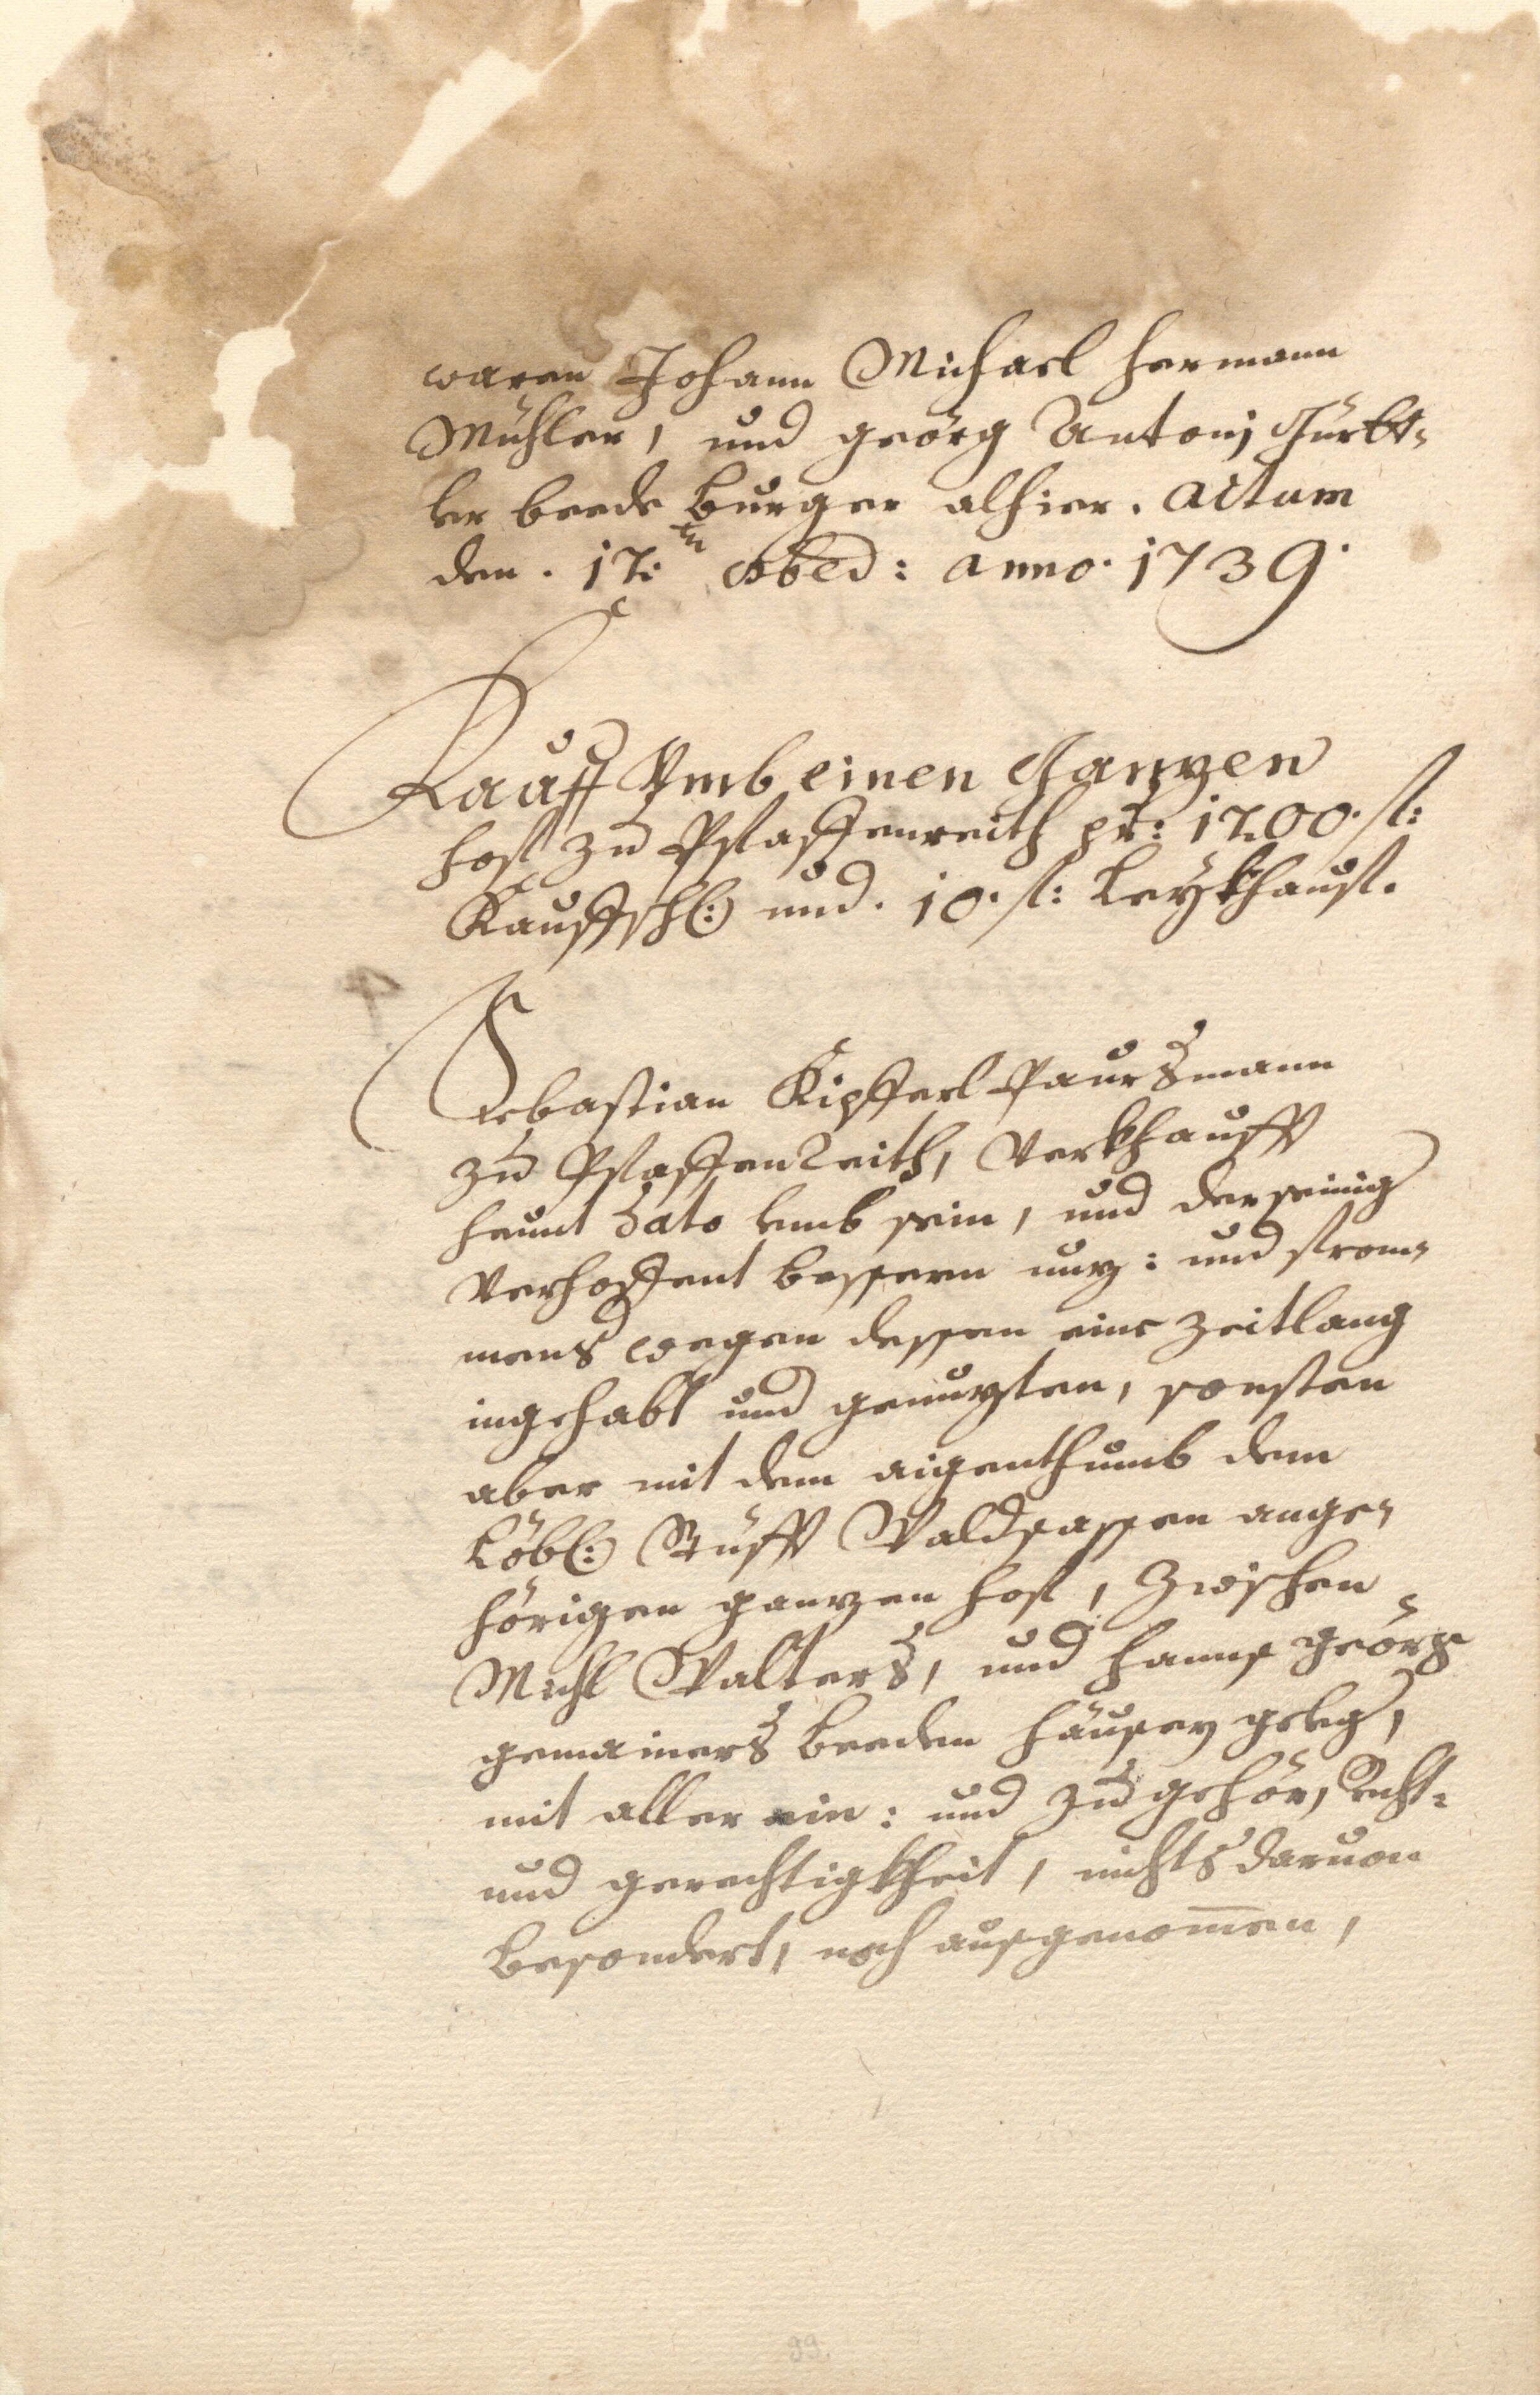 waren Johann Michael Hermann
Mühler, und Geörg Antonj Gürtt-
ler beede Burger alhier. Actum
den. 17.ten 8bed: Anno. 1739.
Kauff Vmb einen Ganzen
Hoff zu Pfaffenreith pr: 1200. fl:
Kauffsch(: und. 10. fl: Leykhauff.
Sebastian Kipfferl Paursmann
zu Pfaffenreith, Verkhaufft
heunt dato umb sein, und der seinig
Verhoffent bessern nuz: und from-
mens wegen dessen eine Zeitlang
ingehabt und genuzten, sonsten
aber mit dem aigenthumb dem
Löbl: Stüfft Waldsassen ange-
hörigen ganzen Hoff, Zwischen
Michl Walters, und Hanns Geörg
Gemainers beeden Häusern gelegen,
mit aller ein: und Zugehör, Recht-
und Gerechtigkheit, nichts daruon
besondert, noch ausgenom̅en,
99.